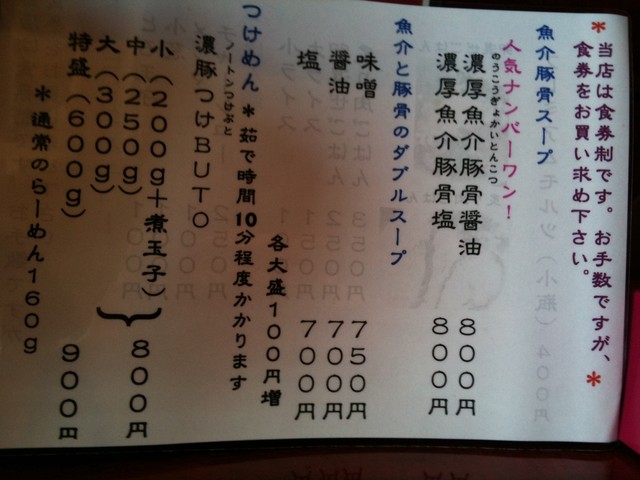 *当店は食券制です。 お手数ですが、
食券をお買い求め下さい。*
魚介豚骨スープ
人気ナンバーワン!
のうこうぎょかいとんこつ
濃厚魚介豚骨醤油 800円
濃厚魚介豚骨塩 800円
魚介と豚骨のダブルスープ
味噌 750円
醤油 700円
塩 700円
各大盛100円増
つけめん *茹で時間10分程度かかります
ノートンつけぶと
濃豚つけBUTO
小(200g+煮玉子)
中(250g) 800円
大(300g)
特盛(600g) 900円
*通常のらーめん160g